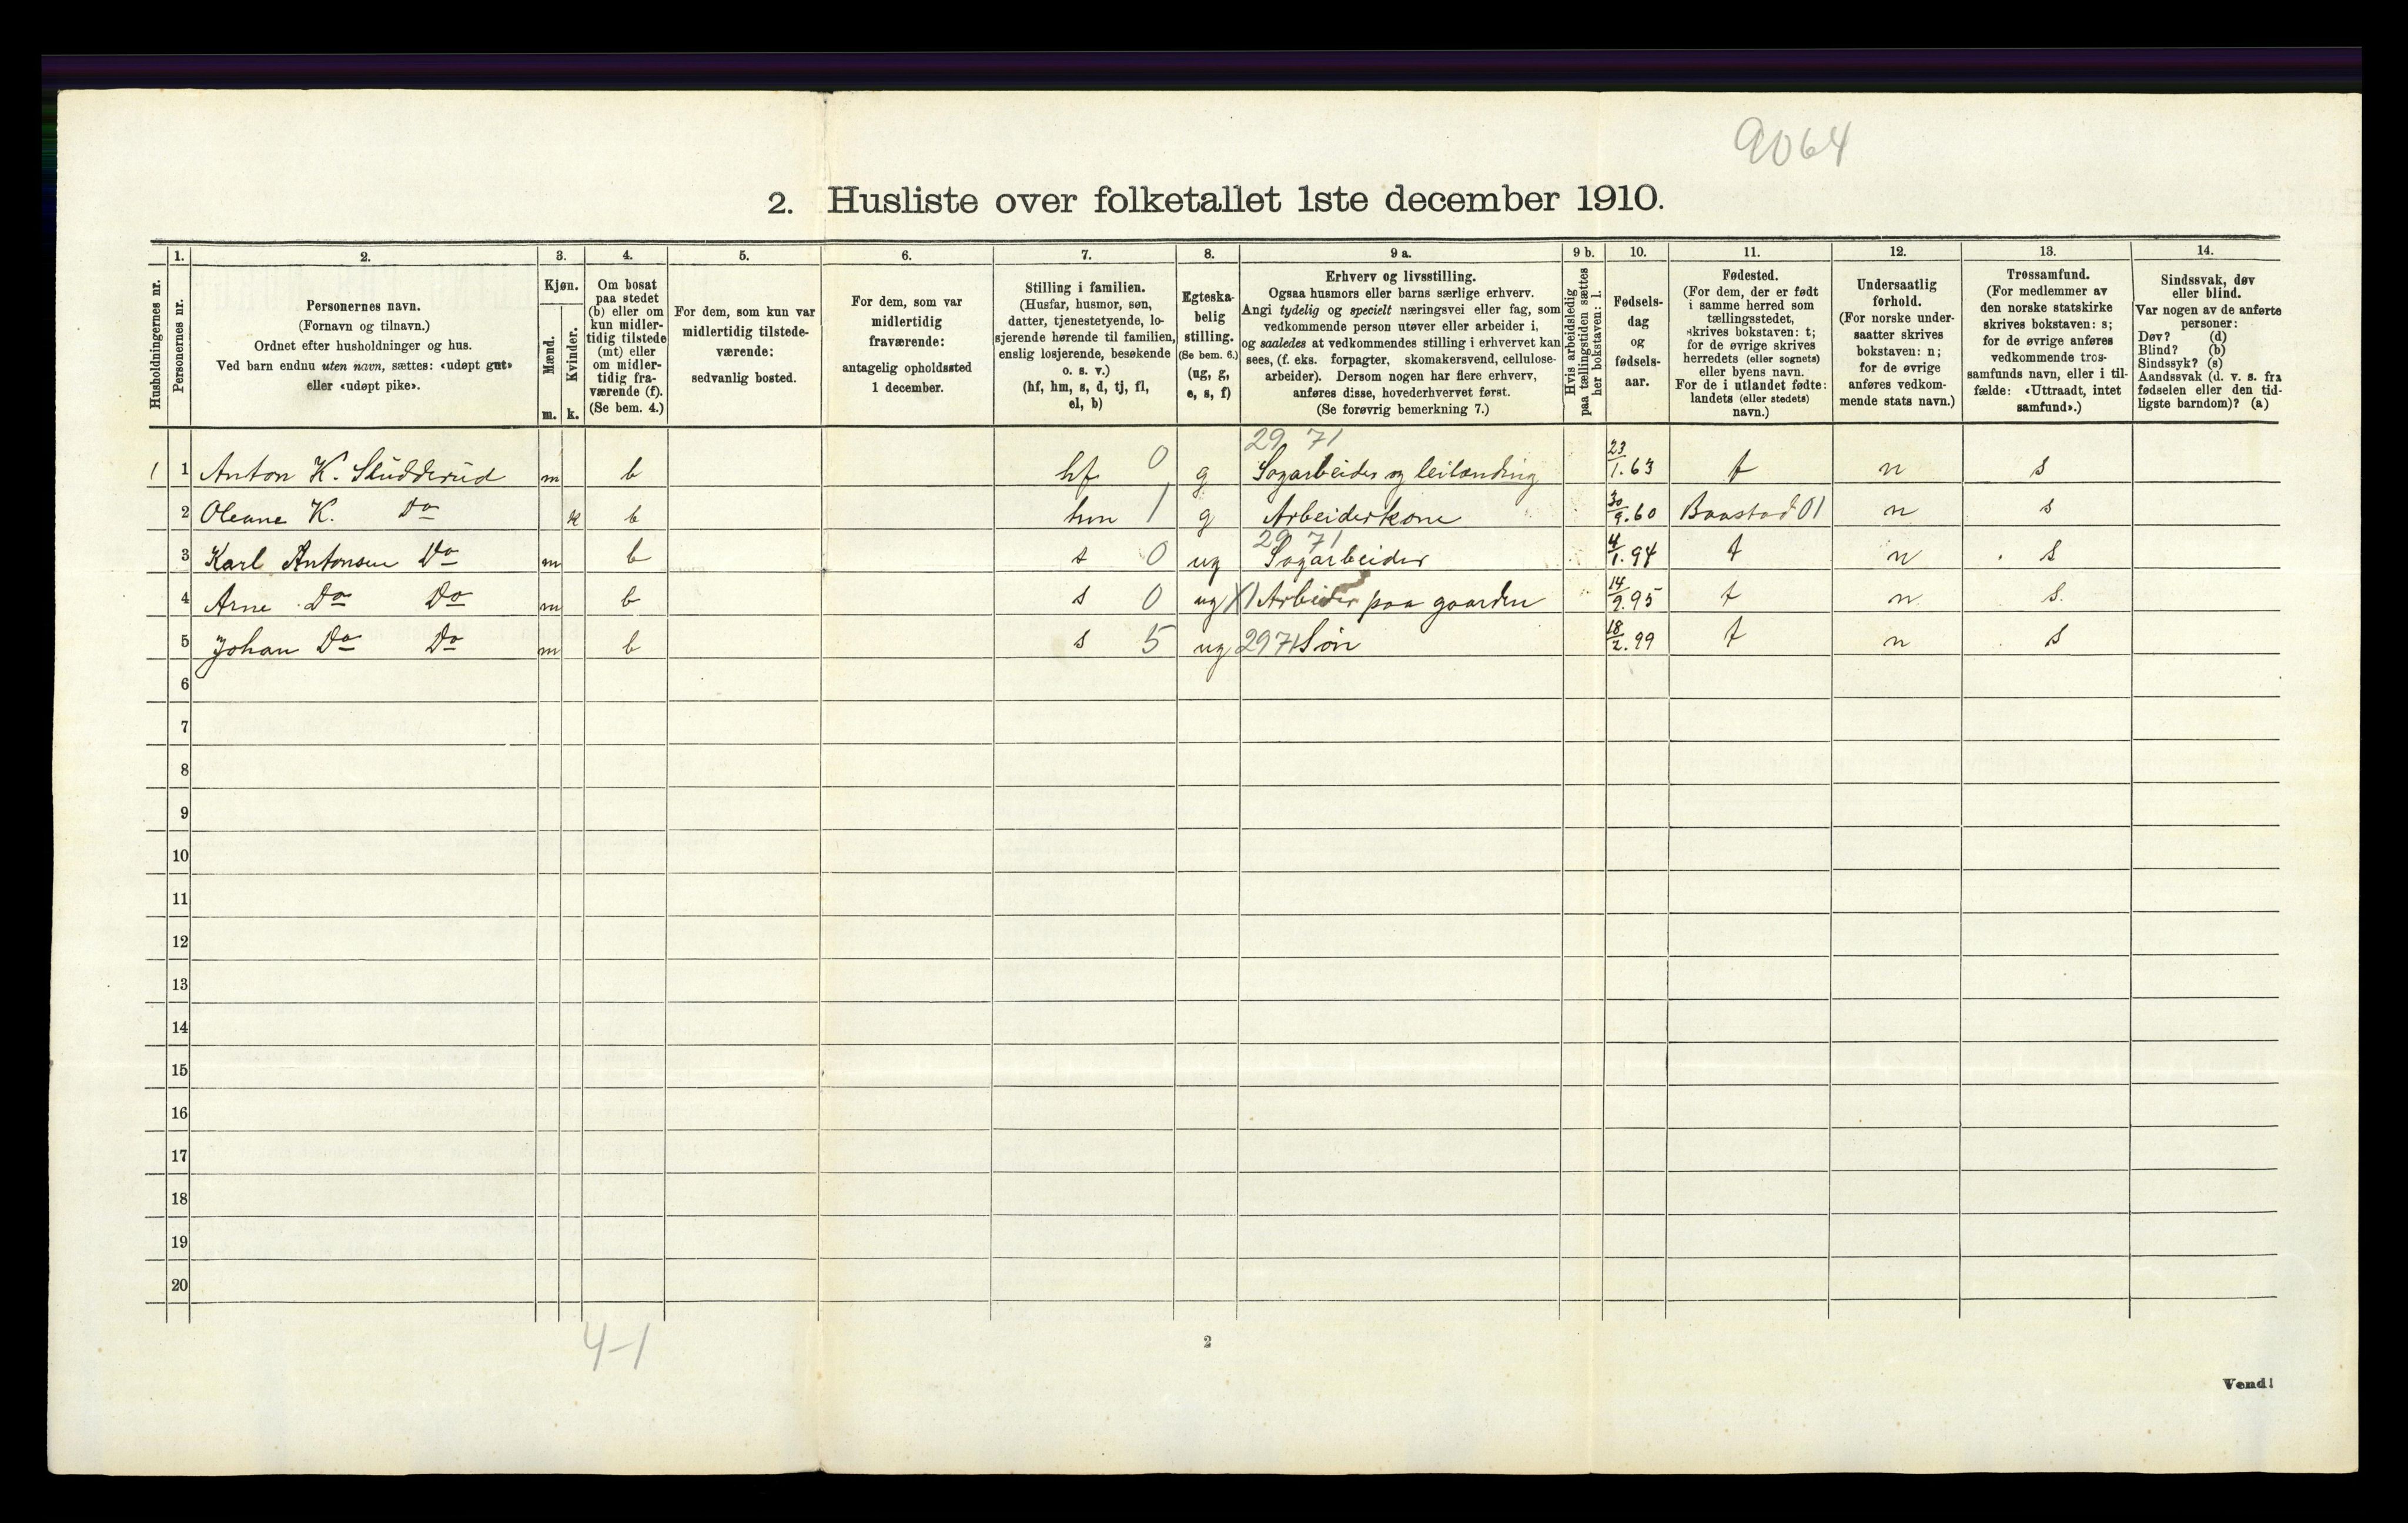 9064
2. Husliste over folketallet 1ste december 1910.
Husholdningernes nr.
1.
Personernes nr.
2.
Personernes navn.
(Fornavn og tilnavn.)
Ordnet efter husholdninger og hus.
Ved barn endnu uten navn, sættes: «udøpt gut»
eller «udøpt pike».
3.
Kjøn.
Mænd.
m.
Kvinder.
k.
4.
Om bosat
paa stedet
(b) eller om
kun midler-
tidig tilstede
(mt) eller
om midler-
tidig fra-
værende (f).
(Se bem. 4.)
5.
For dem, som kun var
midlertidig tilstede-
værende:
sedvanlig bosted.
6.
For dem, som var
midlertidig
fraværende:
antagelig opholdssted
1 december.
7.
Stilling i familien.
(Husfar, husmor, søn,
datter, tjenestetyende, lo-
sjerende hørende til familien,
enslig losjerende, besøkende
o. s. v.)
(hf, hm, s, d, tj, fl,
el, b)
8.
Egteska-
belig
stilling.
(Se bem. 6.)
(ug, g,
e, s, f)
9 a.
Erhverv og livsstilling.
Ogsaa husmors eller barns særlige erhverv.
Angi tydelig og specielt næringsvei eller fag, som
vedkommende person utøver eller arbeider i,
og saaledes at vedkommendes stilling i erhvervet kan
sees, (f. eks. forpagter, skomakersvend, cellulose-
arbeider). Dersom nogen har flere erhverv,
anføres disse, hovederhvervet først.
(Se forøvrig bemerkning 7.)
9 b.
Hvis arbeidsledig
paa tællingstiden sættes
her bokstaven: l.
10.
Fødsels-
dag
og
fødsels-
aar.
11.
Fødested.
(For dem, der er født
i samme herred som
tællingsstedet,
skrives bokstaven: t;
for de øvrige skrives
herredets (eller sognets)
eller byens navn.
For de i utlandet fødte:
landets (eller stedets)
navn.)
12.
Undersaatlig
forhold.
(For norske under-
saatter skrives
bokstaven: n;
for de øvrige
anføres vedkom-
mende stats navn.)
13.
Trossamfund.
(For medlemmer av
den norske statskirke
skrives bokstaven: s;
for de øvrige anføres
vedkommende tros-
samfunds navn, eller i til-
fælde: «Uttraadt, intet
samfund».)
14.
Sindssvak, døv
eller blind.
Var nogen av de anførte
personer:
Døv? (d)
Blind? (b)
Sindssyk? (s)
Aandssvak (d. v. s. fra
fødselen eller den tid-
ligste barndom)? (a)
29 71
1 1 Anton K. Studderud m b hf 0 g Sagarbeider og leilænding 23/1.63 t n s
2 Oleane K. Do k b hm 1 g Arbeiderkone 30/9.60 Baastad 01 n s
29 71
3 Karl Antonsen Do m b s 0 ug Sagarbeider 4/1.94 t n s
4 Arne Do Do m b s 0 ug X1 Arbeider paa gaarden 14/9.95 t n s.
5 Johan Do Do m b s 5 ug 2971 Søn 18/2.99 t n s
6
7
8
9
10
11
12
13
14
15
16
17
18
19
20
4-1
2
Vend!